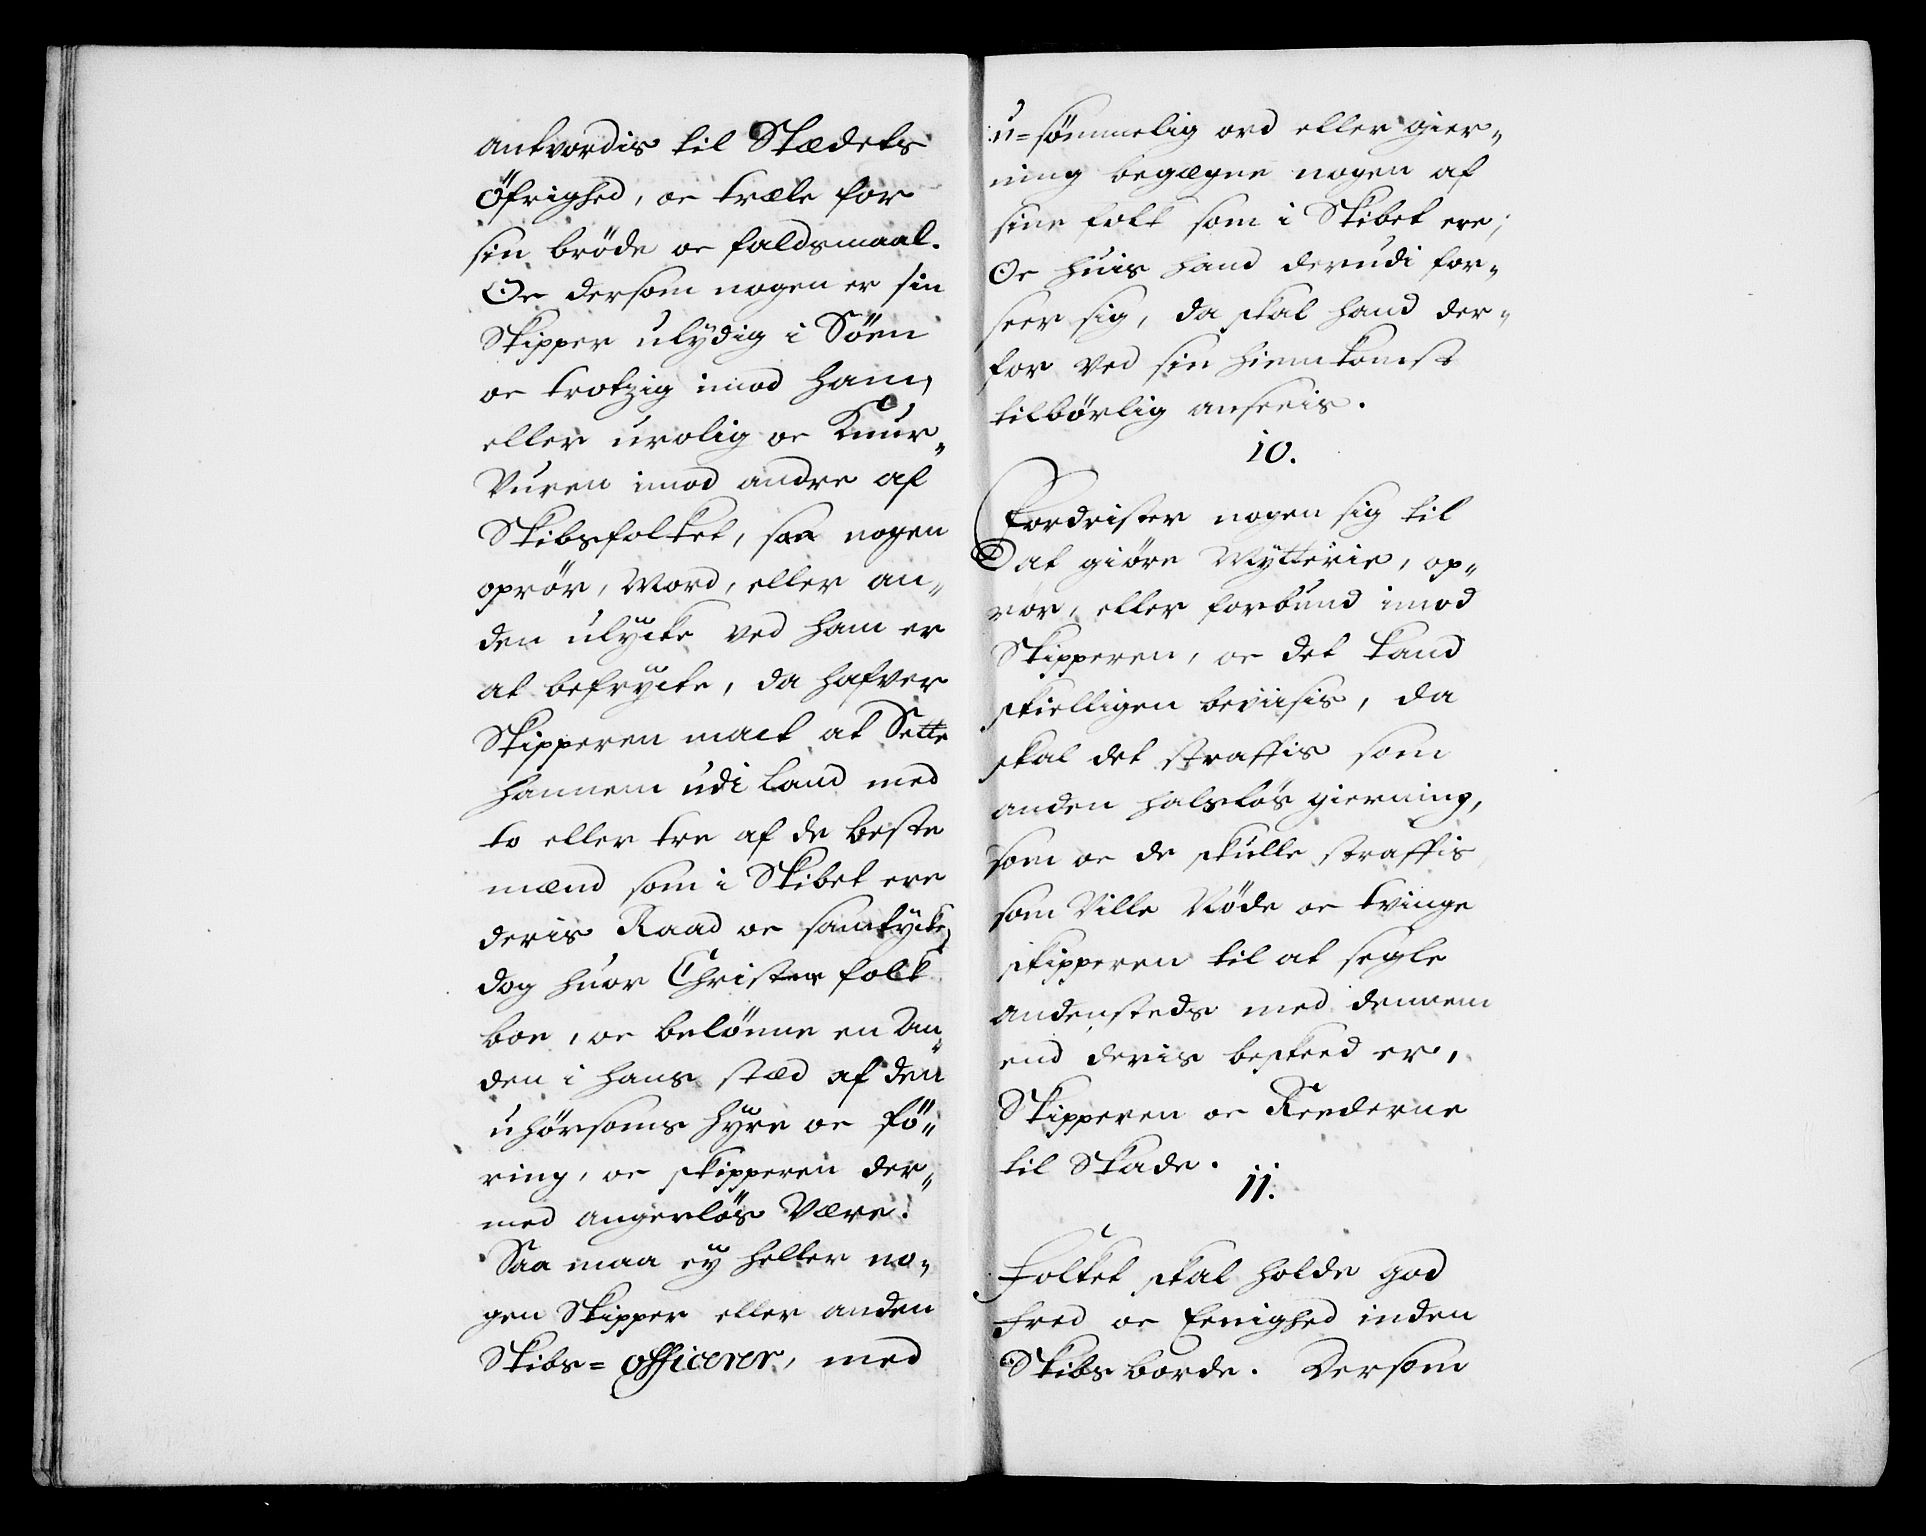 antvordis til Stædets
Öfrighed, oc træle for
sin bröde oc faldsmaal.
Oc dersom nogen er sin
Skipper ulÿdig i Söen
oc trotzig imod ham,
eller urolig oc Knur„
Vuren imod andre af
Skibsfolket, saa nogen
oprör, Mord, eller an„
den ulÿcke ved ham er
at befrÿcte, da hafver
Skipperen mact at Sette
hannem udi land med
to eller tre af de beste
mænd som i Skibet ere
deris Raad oc samtÿcke,
dog huor Christen folck
boe, oc belönne en An„
den i hans stæd af den
uhörsoms hÿre oc fö„
ring, oc skipperen der„
med angerlös Være.
Saa maa eÿ heller no„
gen Skipper eller anden
Skibs= officerer, med
u=sömmelig ord eller gier„
ning begægne nogen af
sine folk som i Skibet ere;
Oc huis hand derudi for„
seer sig, da skal hand der„
for ved sin hiemkomst
tilbørlig anseeis.
10.
Fordrister nogen sig til
at giöre Mÿtterie, op„
rör, eller forbund imod
Skipperen, oc det kand
skielligen beviisis, da
skal det straffis som
anden halslös gierning,
som oc de skulle straffis
som Ville Nöde oc tvinge
skipperen til at segle
andensteds med dennem
end deris beskeed er,
Skipperen oc Reederne
til Skade.
11.
Folket skal holde god
fred oc Eenighed inden
Skibs borde. Dersom